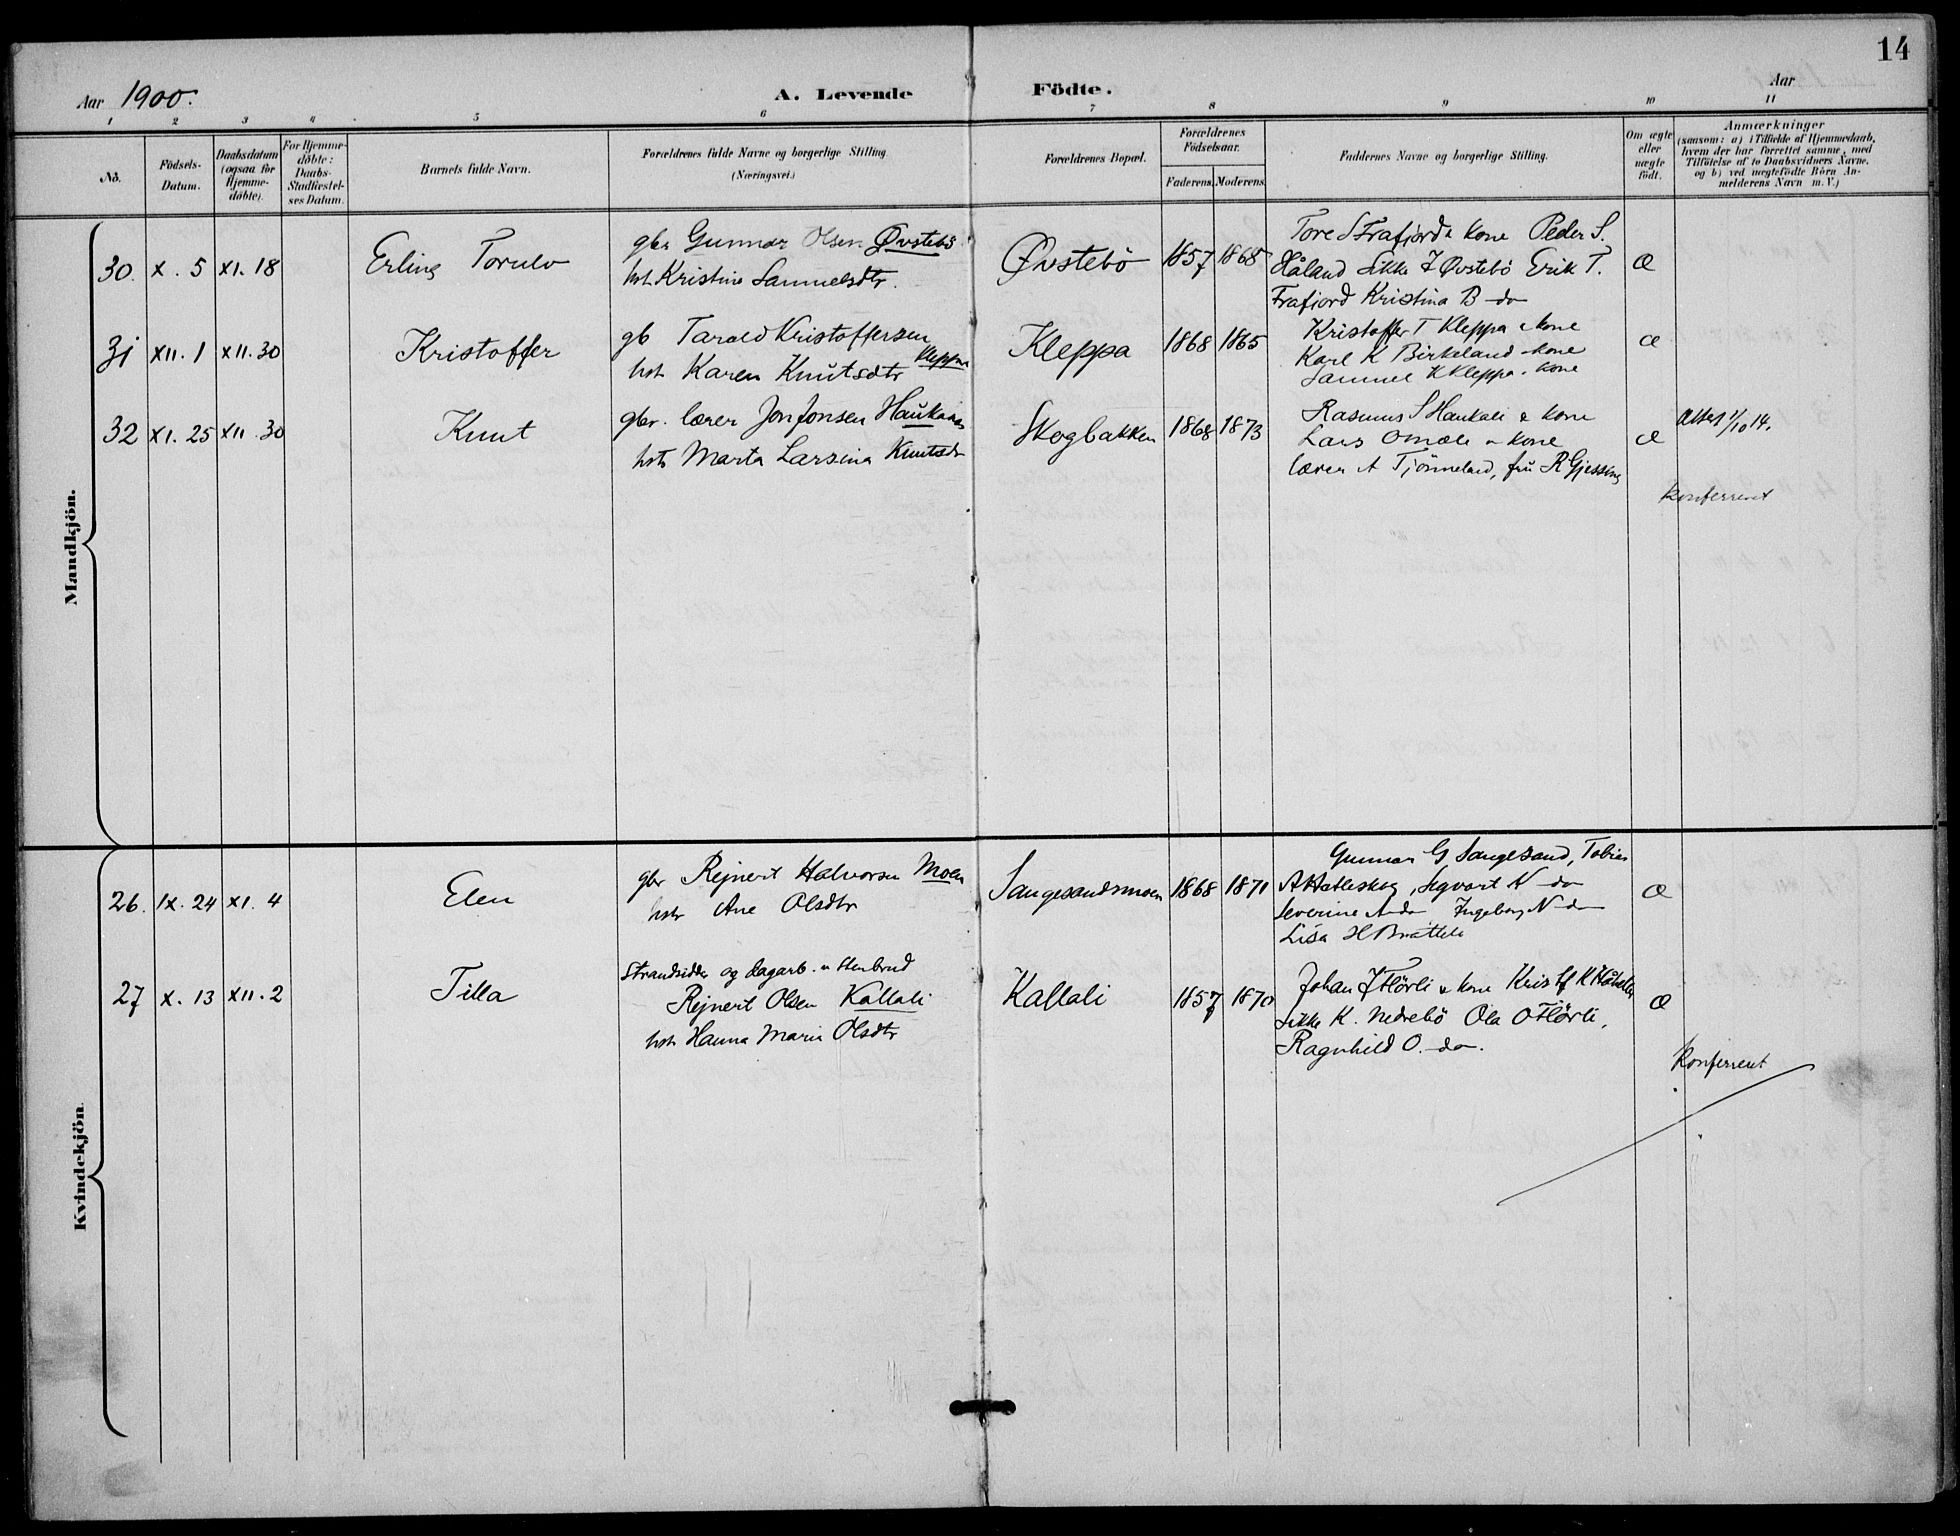 14
Aar 1900.
A. Levende Födte.
Aar
1 2 3 4 5 6 7 8 9 10 11
No.
Födsels-Datum.
Daabsdatum (ogsaa for Hjemme-döbte).
For Hjemme-döbte: Daabs-Stadfæstel-ses Datum.
Barnets fulde Navn.
Forældrenes fulde Navne og borgerlige Stilling.
(Næringsvei.)
Forældrenes Bopæl.
Forældrenes Födselsaar.
Faderens. Moderens.
Faddernes Navne og borgerlige Stilling.
Om ægte eller uægte födt.
Anmærkninger
(saasom: a) i Tilfælde af Hjemmedaab,
hvem der har forrettet samme, med
Tilföielse af to Daabsvidners Navne.
og b) ved uægtefödte Börn An-
melderens Navn m. V.)
Mandkjön.
30. X. 5 XI. 18 Erling Torulv
gbr Gunnar Olsen Øvstebö
hst Kristine Samuelsdtr.
Øvstebö 1857 1868
Tore S Frafjord & kone Peder S.
Håland Sikke T Øvstebö Erik T.
Frafjord Kristina B do
Æ
31 XII. 1 XII. 30 Kristoffer
gb Tarald Kristoffersen
Kleppa
hst Karen Knutsdtr
Kleppa 1868 1865
Kristoffer T Kleppa & kone
Karl K Birkeland kone
Samuel K Kleppa kone
æ
32 XI. 25 XII. 30 Knut
gbr. lærer Jon Jonsen Haukali
hst Marta Larsina Knutsdr
Skogbakken 1868 1873
Rasmus S Haukali & kone
Lars Omdal & kone
lærer A Tjönneland, fru R Gjessing
æ
Attest 1/10 14.
konferert
Kvindekjön.
26. IX. 24 XI. 4 Elen
gbr Rejnert Halvorsen Moen
hst Ane Olsdtr
Sangesandsmoen 1868 1871
Gunnar G Sangesand, Tobias
A Hatleskog, Segvart N do
Severine A do Ingeborg N do
Lisa H Brattli
Æ
27 X. 13 XII. 2 Tilla
Strandsidder og dagarb. v stenbrud
Rejnert Olsen Kallali
hst Hanna Marie Olsdtr
Kallali 1857 1870
Johan J Flörli & kone Krist K Håheller
Sikke K. Nedrebö Ola O Flörli,
Ragnhild O. do.
Æ
konferert